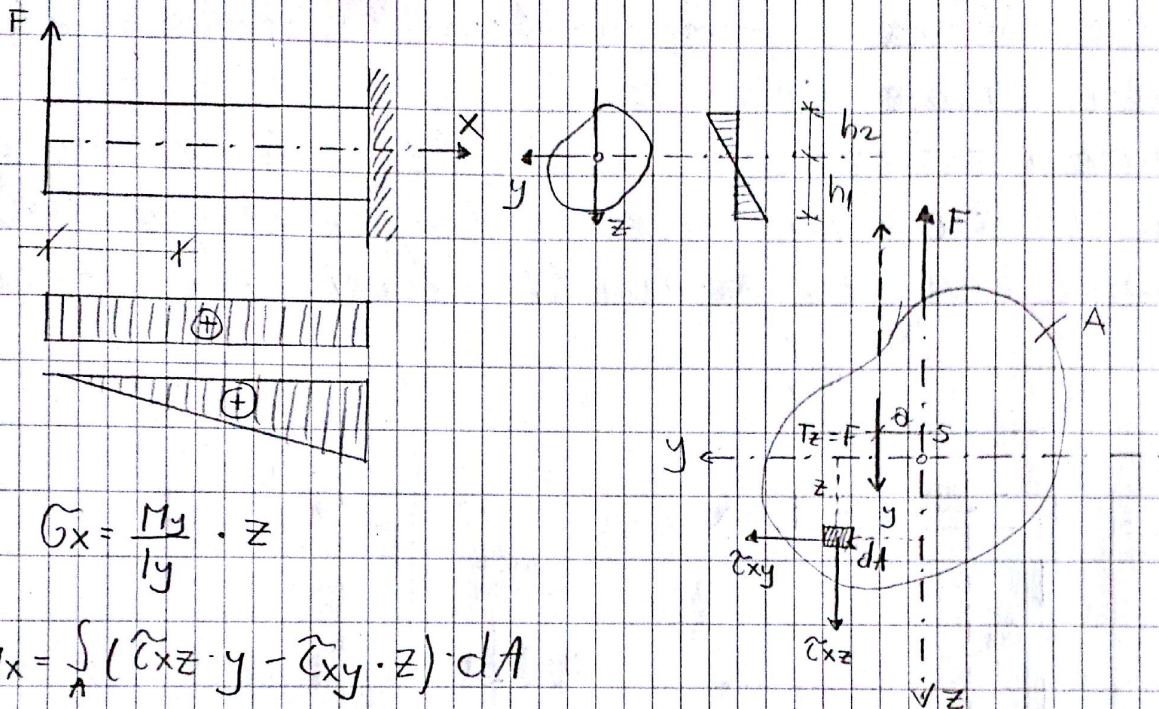 F
X
y
z
h2
h1
F
A
Tz = F
a
S
y
z
y
dA
τxy
τxz
z
+
+
σx = My / Iy · z
x = ∫A (τxz · y − τxy · z) · dA